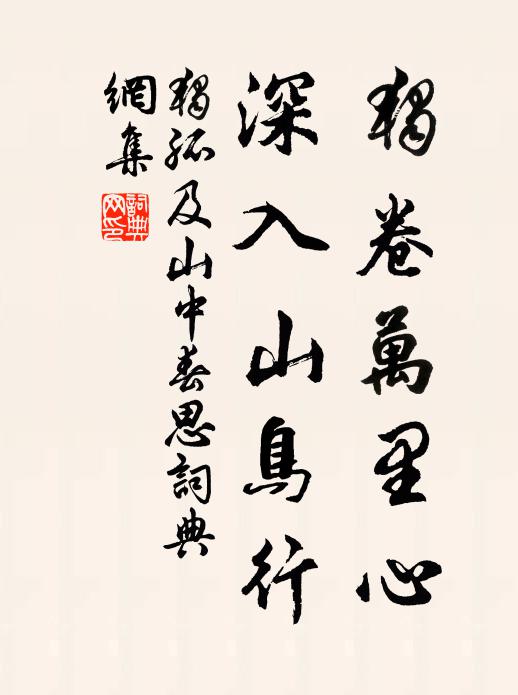 獨卷萬里心
深入山鳥行
獨孤及山中春思詞典
網集
詞典
网印